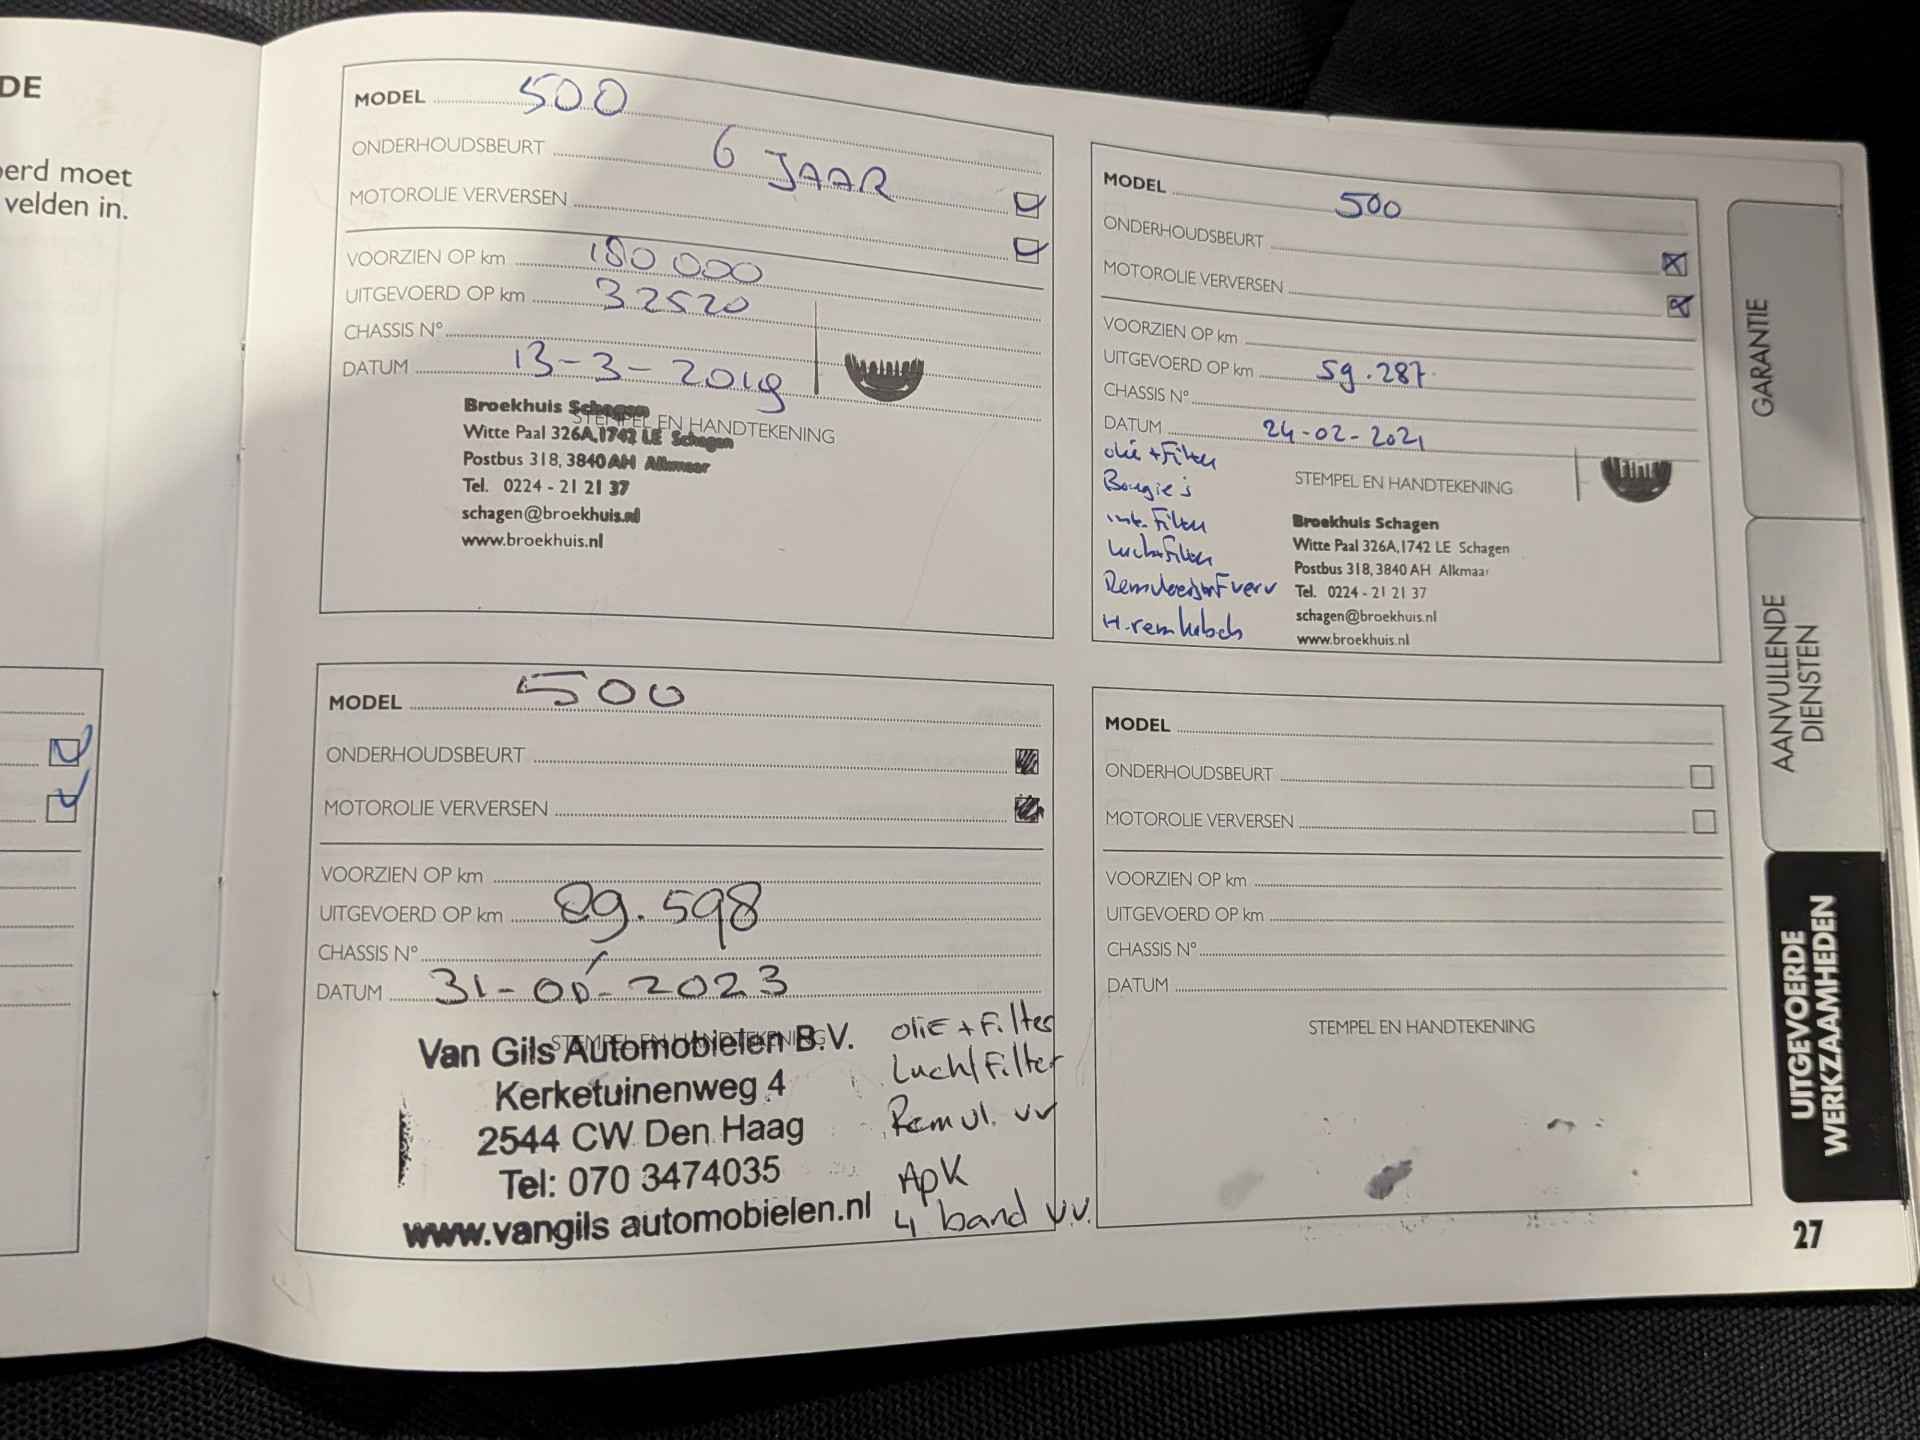 DE
erd moet
velden in.
MODEL 500
ONDERHOUDSBEURT 6 JAAR
MOTOROLIE VERVERSEN
VOORZIEN OP km 180 000
UITGEVOERD OP km 32520
CHASSIS N°
DATUM 13-3-2019
STEMPEL EN HANDTEKENING
Broekhuis Schagen
Witte Paal 326A,1742 LE Schagen
Postbus 318, 3840 AH Alkmaar
Tel. 0224 - 21 21 37
schagen@broekhuis.nl
www.broekhuis.nl
MODEL 500
ONDERHOUDSBEURT
MOTOROLIE VERVERSEN
VOORZIEN OP km
UITGEVOERD OP km 59.287
CHASSIS N°
DATUM 24-02-2021
olie + Filter
Bougie's
int. Filter
Luchtfilter
Remvloeistof verv
H-rem
STEMPEL EN HANDTEKENING
Broekhuis Schagen
Witte Paal 326A,1742 LE Schagen
Postbus 318, 3840 AH Alkmaar
Tel. 0224 - 21 21 37
schagen@broekhuis.nl
www.broekhuis.nl
MODEL 500
ONDERHOUDSBEURT
MOTOROLIE VERVERSEN
VOORZIEN OP km
UITGEVOERD OP km 89.598
CHASSIS N°
DATUM
STEMPEL EN HANDTEKENING
Van Gils Automobielen B.V.
Kerketuinenweg 4
2544 CW Den Haag
Tel: 070 3474035
www.vangils automobielen.nl
oliE + Filter
Lucht Filter
Remvl. vv
APK
4 band v.v.
MODEL
ONDERHOUDSBEURT
MOTOROLIE VERVERSEN
VOORZIEN OP km
UITGEVOERD OP km
CHASSIS N°
DATUM
STEMPEL EN HANDTEKENING
GARANTIE
AANVULLENDE
DIENSTEN
UITGEVOERDE
WERKZAAMHEDEN
27